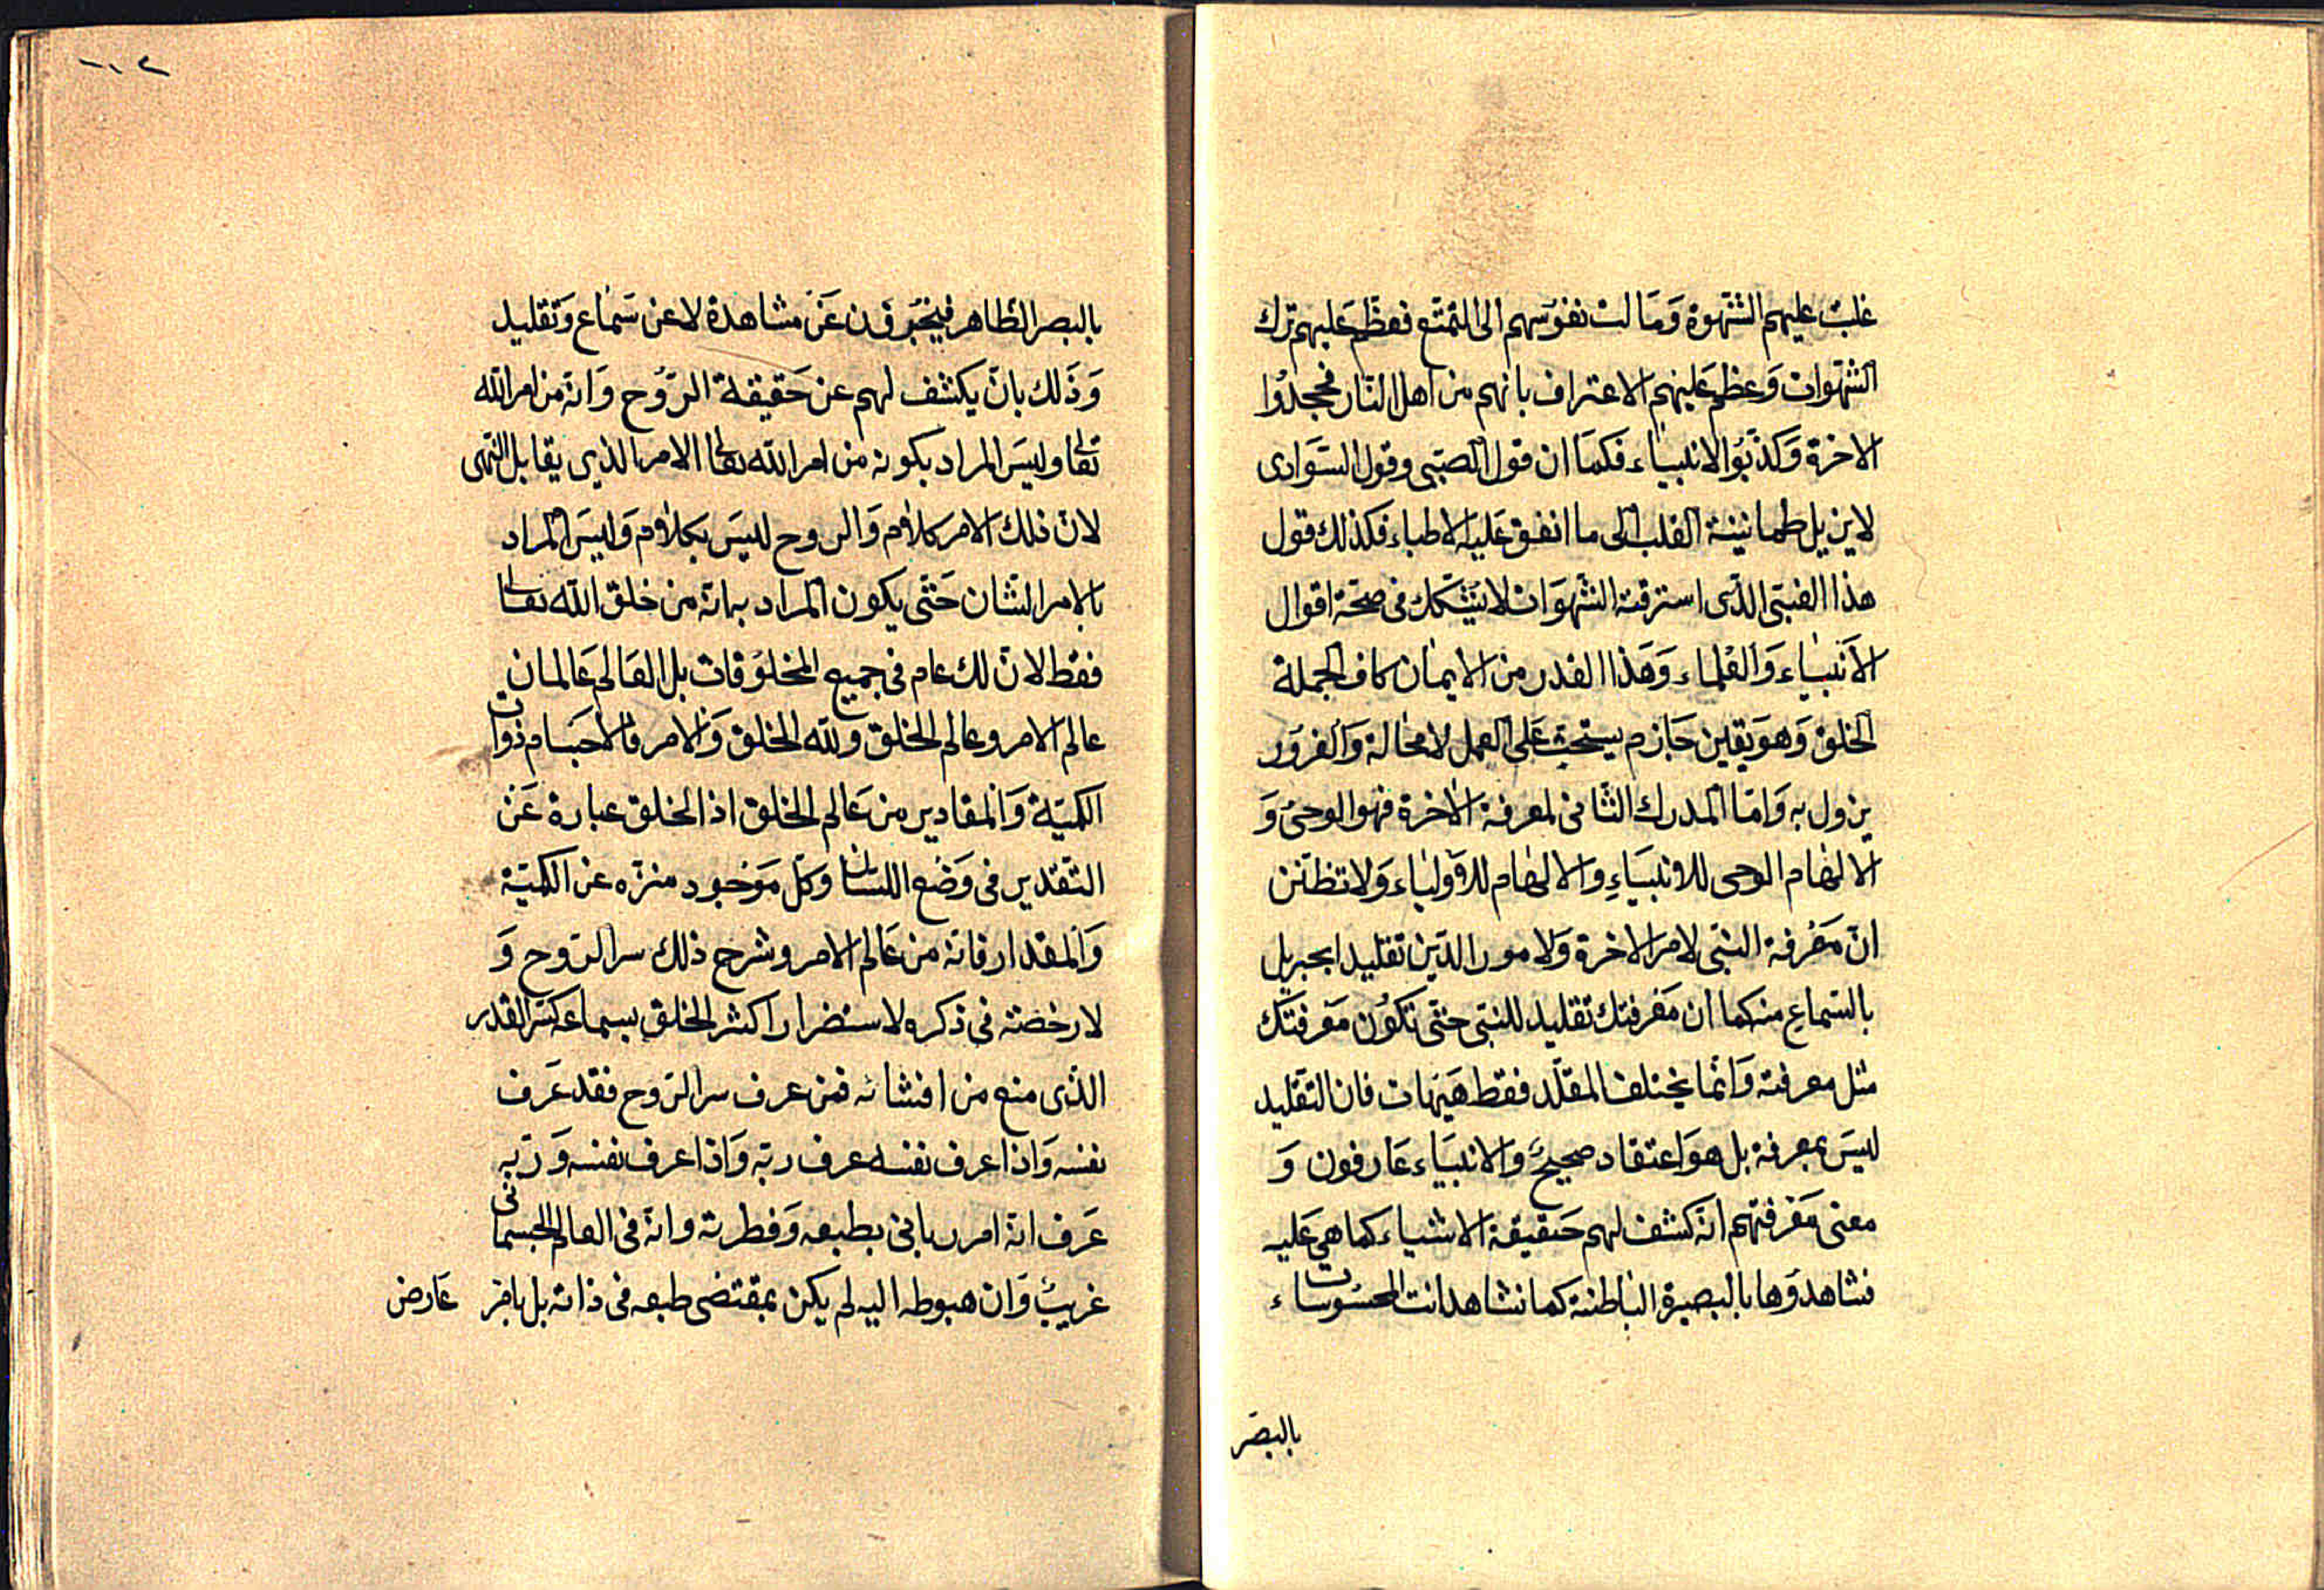 غلبت عليهم الشهوة وَمَالت نفوسهم الى التمتع فعظم عليهم ترك
الشهوات وَعظم عَليهم الاعتراف بانهم من اهل النّار فجحدُوا
الاخرة وَكذّبُوا الانبياء فكمَا ان قول الصّبى وقول السّوادى
لايزيل طمانينة القلب الى ما اتفق عَليه الاطباء فكذلك قول
هذا الغبىّ الذّى استرقته الشّهوَات لا يشكك فى صحّة اقوال
الاَنبيَاء وَالعُلماء وَهَذا القدر من الايمان كاف لجملة
الخلق وَهوَ يقين جَازم يستحثّ عَلى العمل لامحالة وَالغرُور
يزول به وَامّا المدرك الثانى لمعرفة الاخرة فهو الوحىُ وَ
الالهام الوحى للانبيَاءِ والالهام للاَوليَاء وَلا تظنّن
انّ مَعْرفة النبّى لامر الاخرة وَلامور الدّين تقليد لجبريل
بالسّماعِ منه كما ان مَعرفتك تقليد للنبّى حتّى تكُون مَعرفتك
مثل معرفته وَانّما يختلف المقلّد فقط هَيهات فان التقليد
ليسَ بمعرفة بل هوَ اعتقاد صحيحٌ وَالانبيَاء عَارفون وَ
معنى مَعْرفتهم انّه كشف لهم حَقيقة الاشياء كما هي عَليه
فشاهدوَها بالبصيرة الباطنة كما تشاهد انت المحسُوسات
بالبصَر
١١٢
بالبصر الظاهر فيخبرُون عَن مشاهدة لاعن سَماع وَتقليد
وَذَلك بانّ يكشف لهم عن حَقيقة الرّوُح وَانّه من امر الله
تعالى وليسَ المراد بكونه من امر الله تعالى الامر الذي يقابل النّهى
لانّ ذلك الامر كلام وَالروح ليسَ بكلام وَليسَ المراد
بالامر الشان حَتّى يكون المراد به انّه من خلق الله تعالى
فقط لانّ ذلك عام فى جميع المخلوُقات بل العَالم عَالمان
عالم الامر وعالم الخلق وَلله الخلق وَالامر فالاجسَام ذوات
الكميّة وَالمقادير من عَالم الخلق اذ الخلق عبارة عَنْ
التقدير فى وَضع اللسان وَكلّ مَوجُود منزّه عن الكميّة
وَالمقدار فانّه من عَالم الامر وشرح ذلك سر الرّوح وَ
لا رخصة فى ذكره لاستضرار اكثر الخلق بسماعه كسّر القدر
الذّى منع من افشائه فمن عرف سر الرّوح فقد عَرف
نفسه وَاذا عرف نفسه عرف ربّه وَاذا عرف نفسه وَربّه
عَرف انّه امر ربانى بطبعه وَفطرته وانّه فى العالم الجسمانى
غريبٌ وَان هبوطه اليه لم يكن بمقتضى طبعه فى ذاته بل بامر عَارض